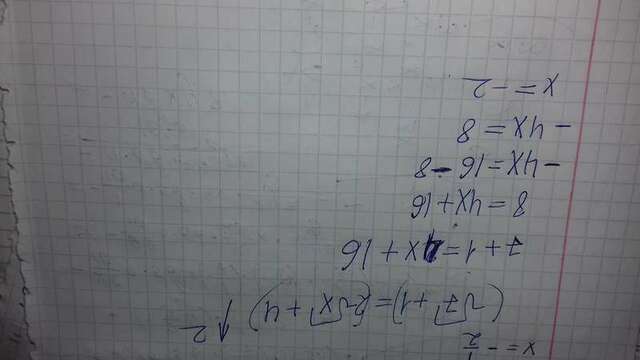 x = -1/2
(√7 + 1) = (2√x + 4) ↑ 2
7 + 1 = 4x + 16
8 = 4x + 16
-4x = 16 - 8
-4x = 8
x = -2